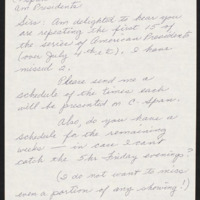 Am Presidents
Sirs: Am delighted to hear you
are repeating the first 15 of
the series of American Presidents
(over July 4th etc). I have
missed 2.
Please send me a
schedule of the times each
will be presented on C-Span.
Also, do you have a
schedule for the remaining
weeks — in case I can't
catch the 5hr Friday evenings?
(I do not want to miss
even a portion of any showing!)